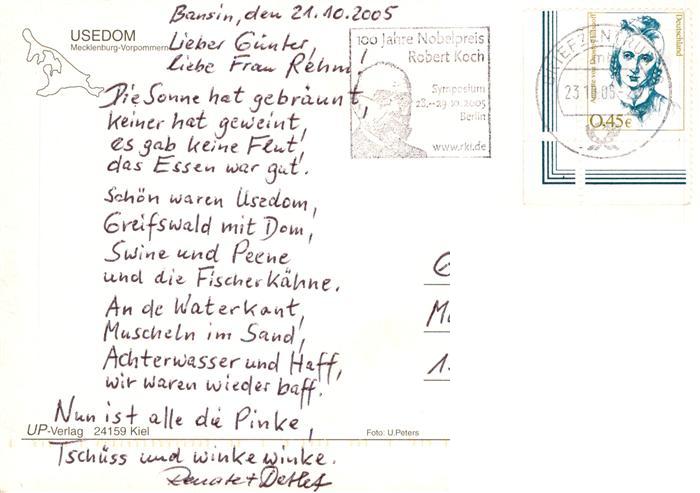 USEDOM
Mecklenburg-Vorpommern
Bansin, den 21.10.2005
Lieber Günter,
liebe Frau Rehm!
Die Sonne hat gebräunt,
keiner hat geweint,
es gab keine Flut,
das Essen war gut.
Schön waren Usedom,
Greifswald mit Dom,
Swine und Peene
und die Fischerkähne.
An de Waterkant,
Muscheln im Sand,
Achterwasser und Haff,
wir waren wieder baff.
Nun ist alle die Pinke,
Tschüss und winke winke.
Renate + Detlef
UP-Verlag 24159 Kiel
Foto: U.Peters
100 Jahre Nobelpreis
Robert Koch
Symposium
28.-29.10.2005
Berlin
www.rki.de
BRIEFZENTRUM
23.10.05
Deutschland
0,45€
G
M
1.